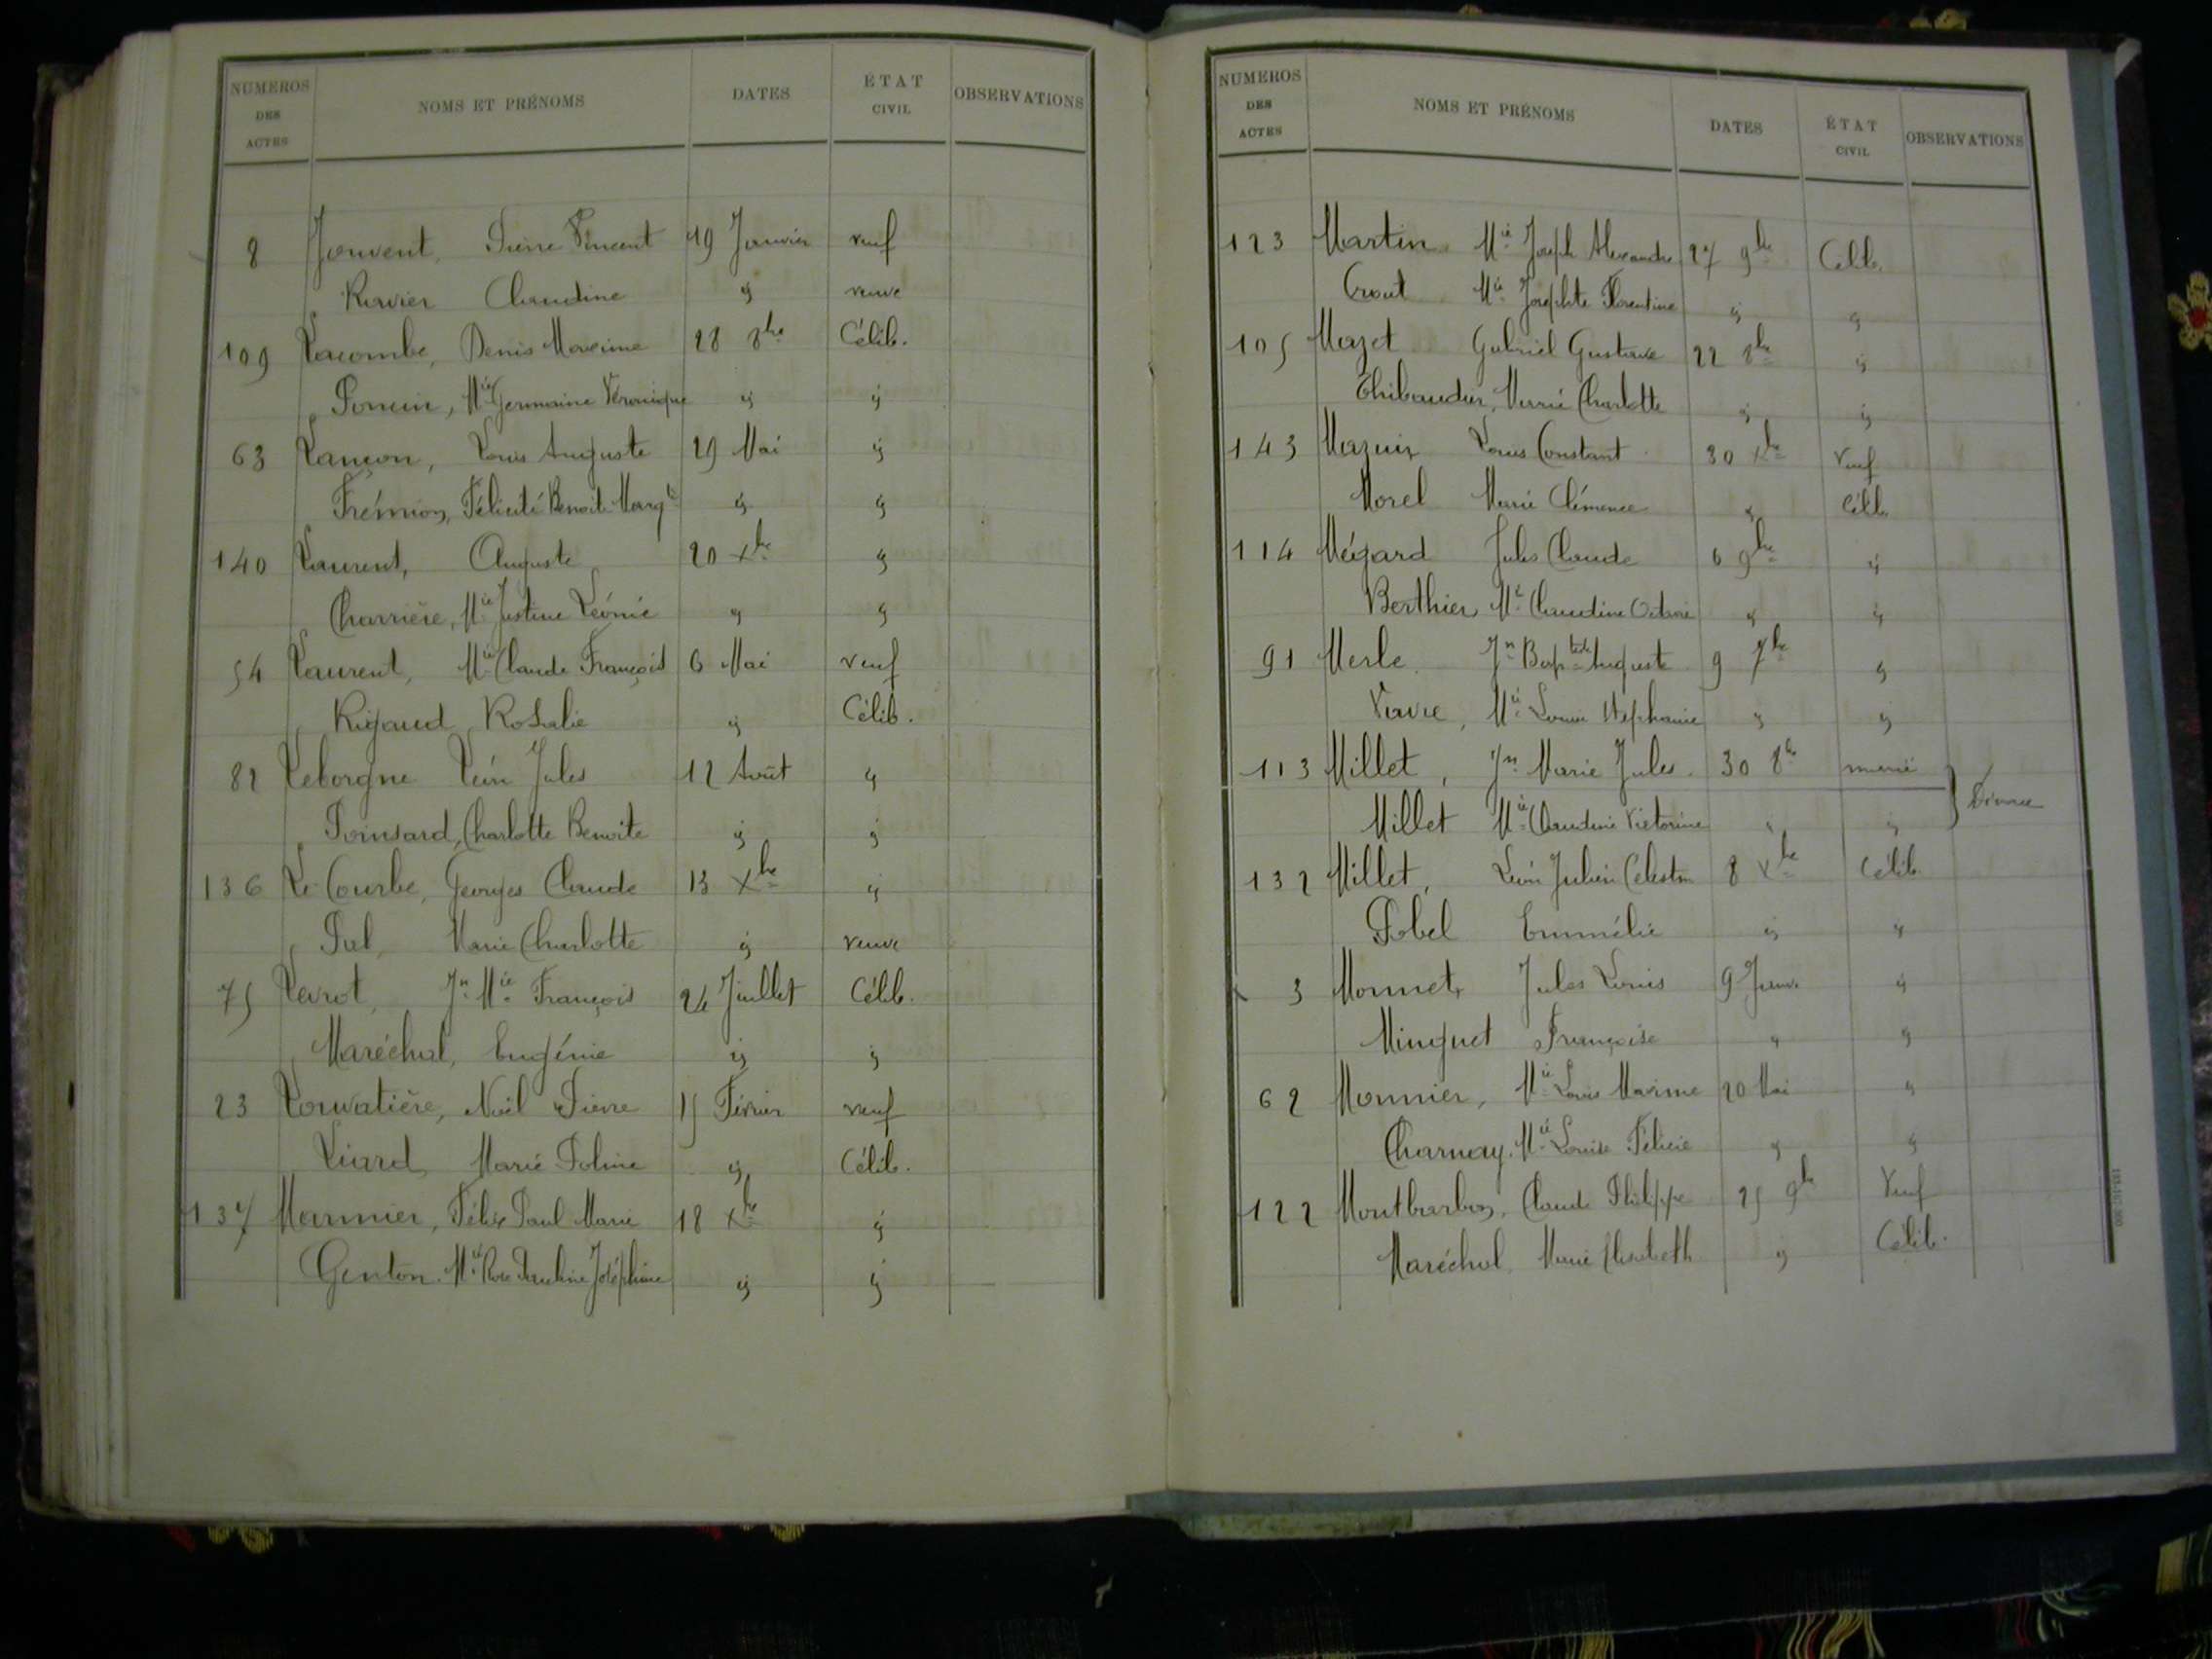 NUMEROS DES ACTES NOMS ET PRÉNOMS DATES ÉTAT CIVIL OBSERVATIONS
8 Jouvent, Pierre Vincent 19 Janvier veuf
Ravier Claudine " veuve
109 Lacombe, Denis Maxime 28 8bre Célib.
Poncin, Mie Germaine Véronique " "
63 Lançon, Louis Auguste 29 Mai "
Frémion, Félicité Benoite Margte " "
140 Laurent, Auguste 20 Xbre "
Charrière, Mie Justine Léonie " "
54 Laurent, Mie Claude François 6 Mai veuf
Rigaud Rosalie " Célib.
82 Leborgne Léon Jules 12 Août "
Poinsard, Charlotte Benoite " "
136 Le Courbe, Georges Claude 13 Xbre "
Piel, Marie Charlotte " veuve
75 Levrot, Jn Mie François 24 Juillet Célib.
Maréchal, Eugénie " "
23 Louvatière, Noël Pierre 15 Février veuf
Liard, Marie Poline " Célib.
137 Marmier, Félix Paul Marie 18 Xbre "
Genton. Mie Rose Pauline Joséphine " "
NUMEROS DES ACTES NOMS ET PRÉNOMS DATES ÉTAT CIVIL OBSERVATIONS
123 Martin Mie Joseph Alexandre 27 9bre Célib.
Mie Josephte Florentine " "
105 Mazet Gabriel Gustave 22 8bre "
Thibaudier, Marie Charlotte " "
143 Mazuir Louis Constant 30 Xbre Veuf
Morel Marie Clémence " Célib.
114 Mégard Jules Claude 6 9bre "
Berthier Mie Claudine Octavie " "
91 Merle Jn Baptiste Auguste 9 7bre "
Mie Louise Stéphanie " "
113 Millet, Jn Marie Jules 30 8bre marié } Divorce
Millet Mie Claudine Victorine " "
132 Millet, Léon Julien Célestin 8 Xbre Célib.
Pobel Emmélie " "
3 Monnet Jules Louis 9 Janv. "
Minguet Françoise " "
62 Monnier, Mie Louis Maxime 20 Mai "
Charnay. Mie Louise Félicie " "
122 Montbarbon, Claude Philippe 25 9bre Veuf
Maréchal Marie Elisabeth " Célib.